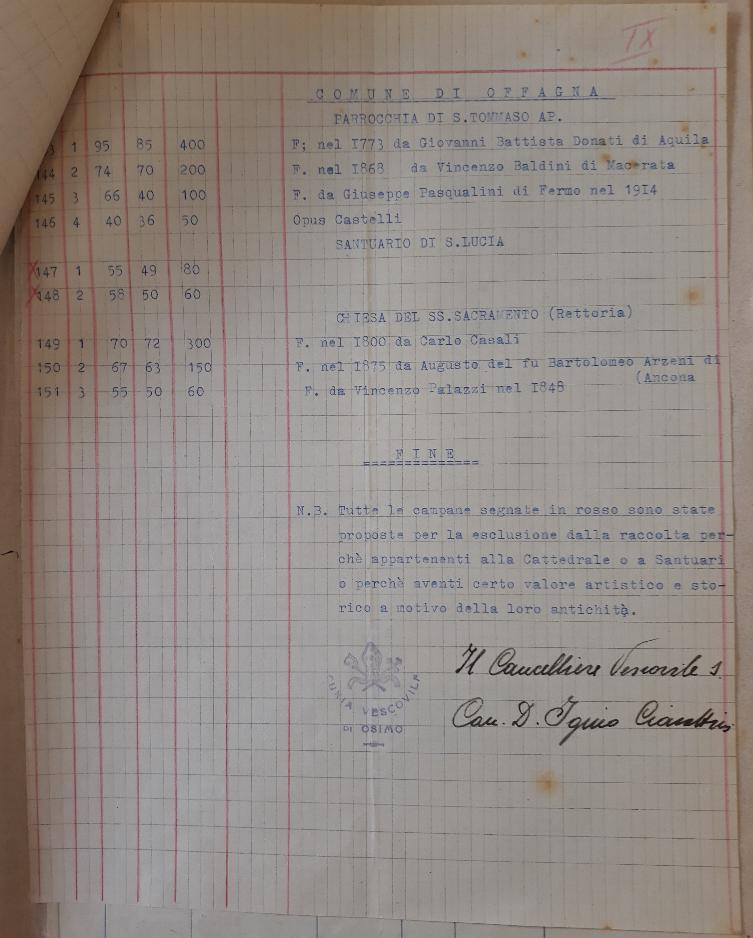 IX
COMUNE DI OFFAGNA
PARROCCHIA DI S.TOMMASO AP.
3 1 95 85 400 F; nel I773 da Giovanni Battista Donati di Aquila
144 2 74 70 200 F. nel I868 da Vincenzo Baldini di Macerata
145 3 66 40 100 F. da Giuseppe Pasqualini di Fermo nel I9I4
146 4 40 36 50 Opus Castelli
SANTUARIO DI S.LUCIA
X147 1 55 49 80
X148 2 58 50 60
CHIESA DEL SS.SACRAMENTO (Rettoria)
149 1 70 72 300 F. nel I800 da Carlo Casali
150 2 67 63 150 F. nel I875 da Augusto del fu Bartolomeo Arzeni di
(Ancona
151 3 55 50 60 F. da Vincenzo Palazzi nel I848
FINE
==============
N.B. Tutte le campane segnate in rosso sono state
proposte per la esclusione dalla raccolta per-
chè appartenenti alla Cattedrale o a Santuari
o perchè aventi certo valore artistico e sto-
rico a motivo della loro antichità.
CURIA VESCOVILE
DI OSIMO
Il Cancelliere Vescovile
Can. D. Igino